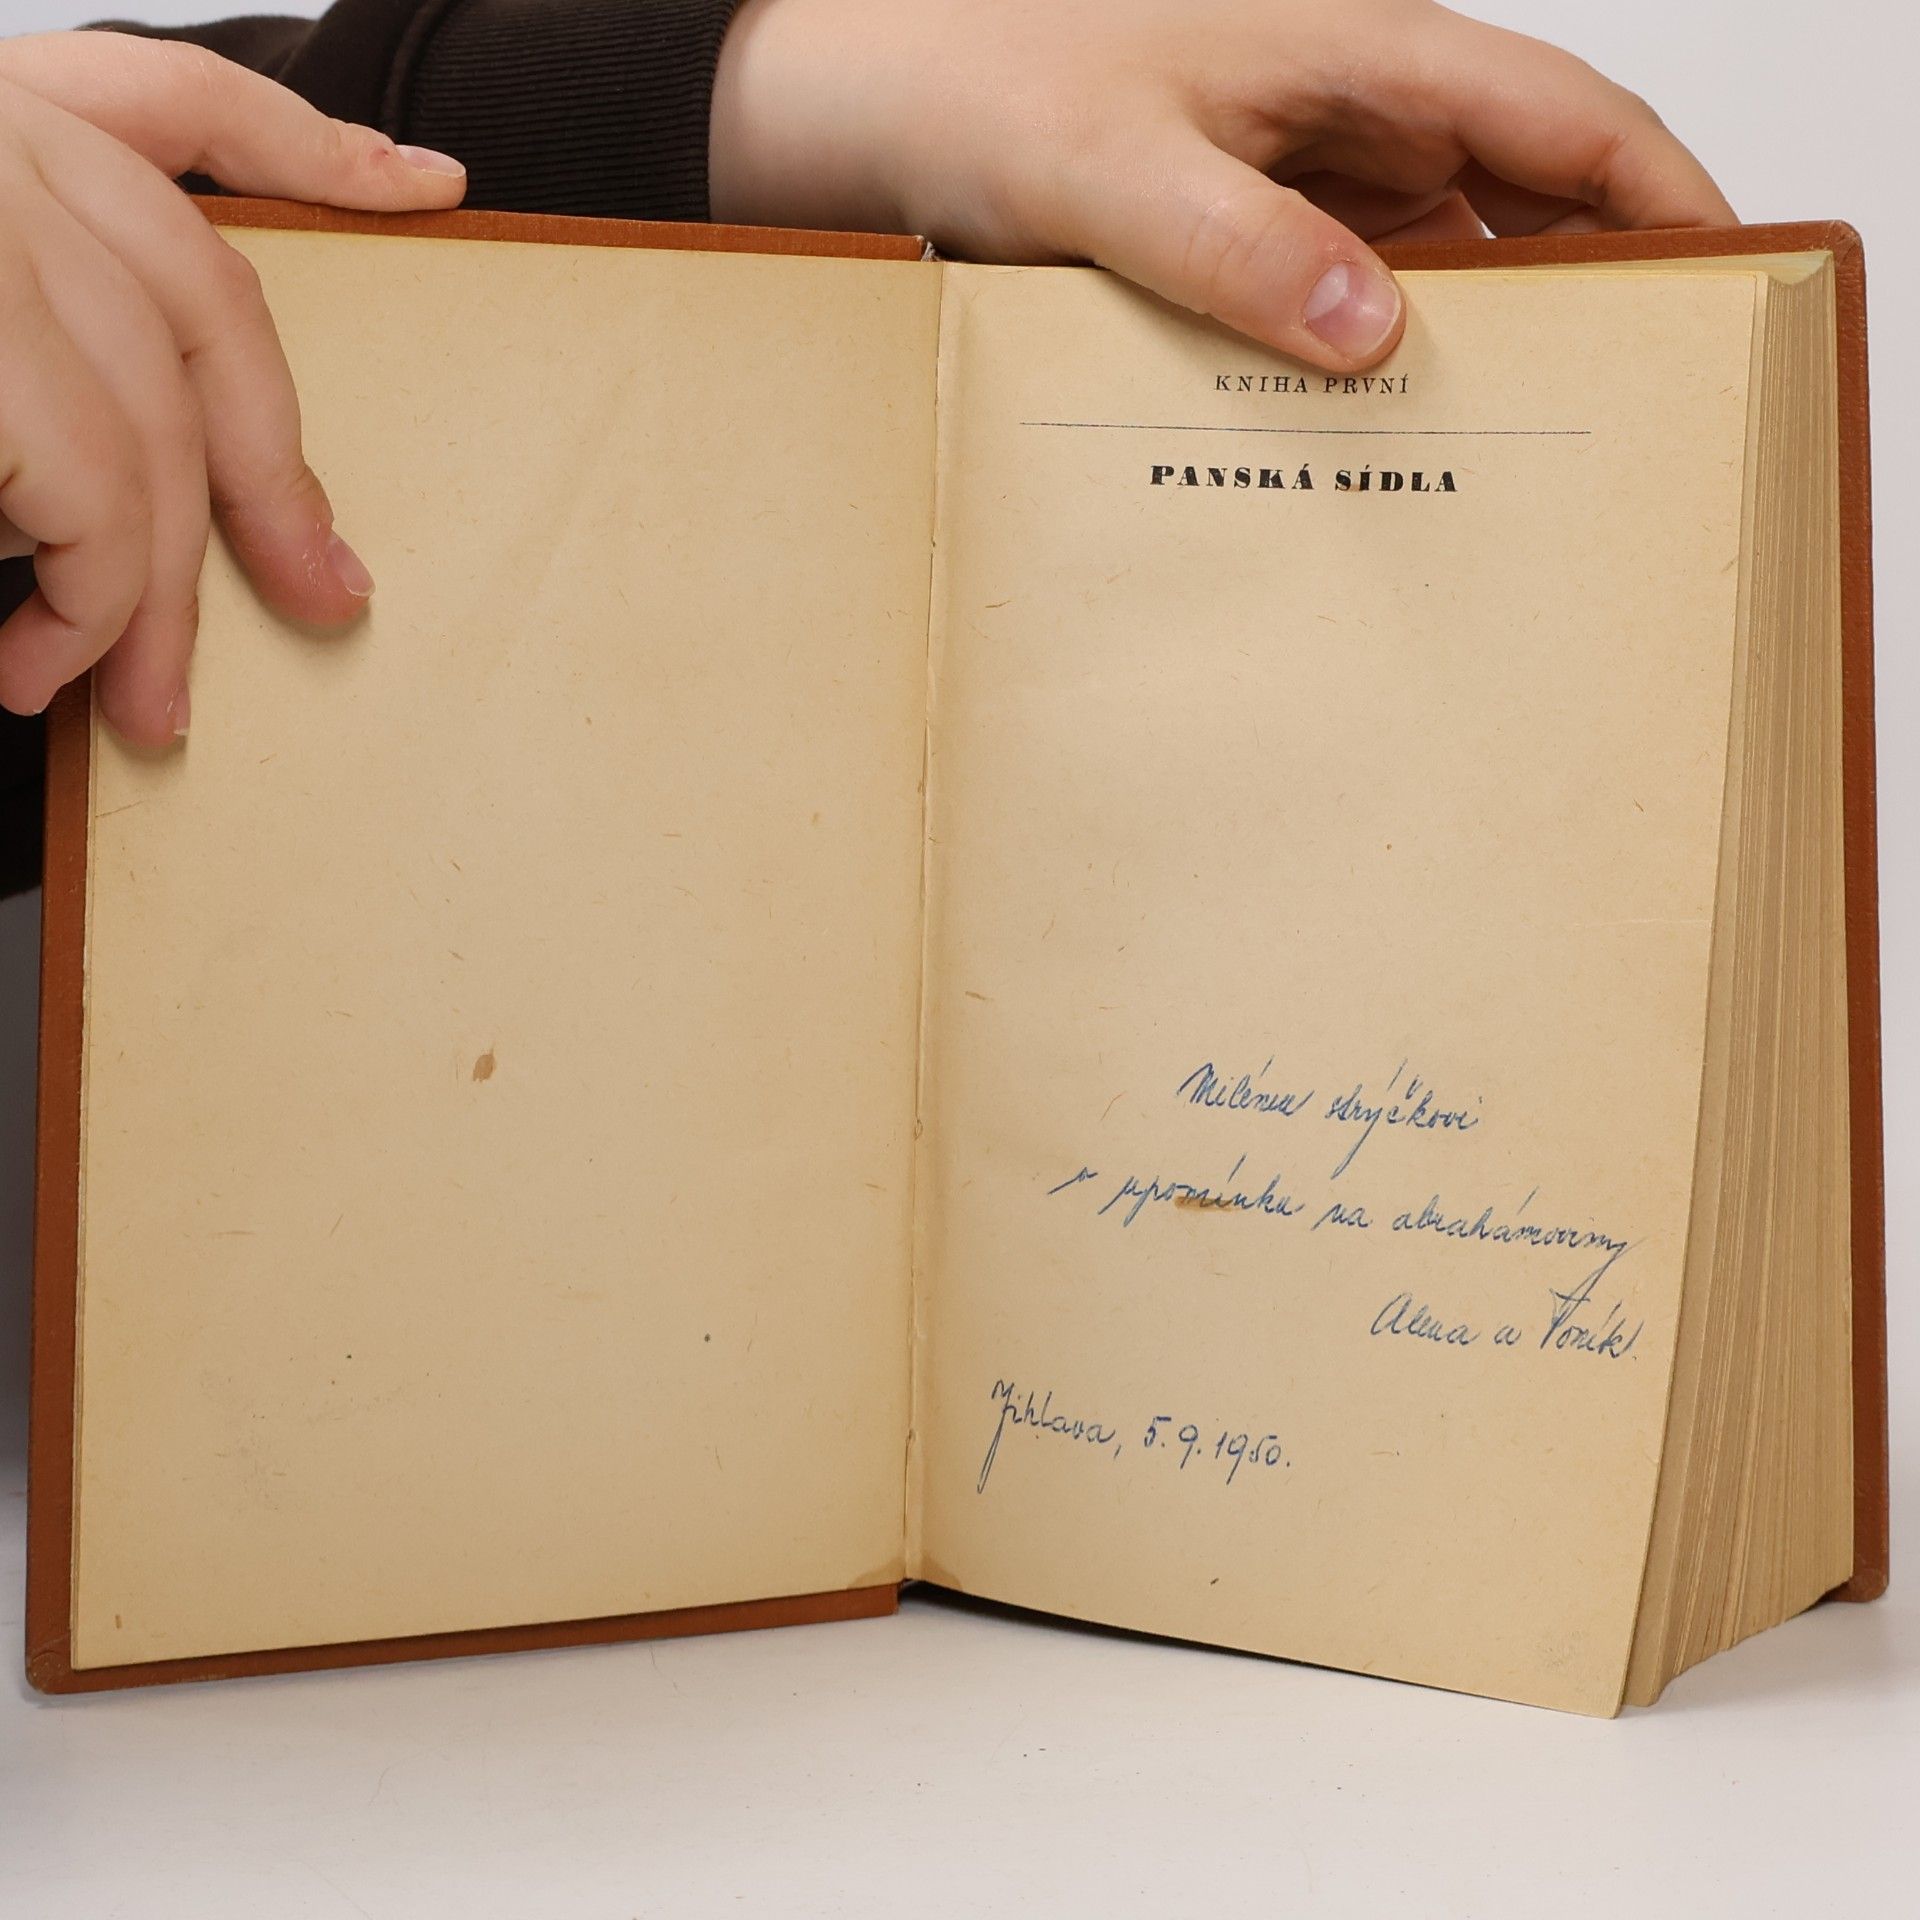 KNIHA PRVNÍ
PANSKÁ SÍDLA
Milému strýčkovi
v upomínku na abrahámoviny
Alena a Toník.
Jihlava, 5.9.1950.